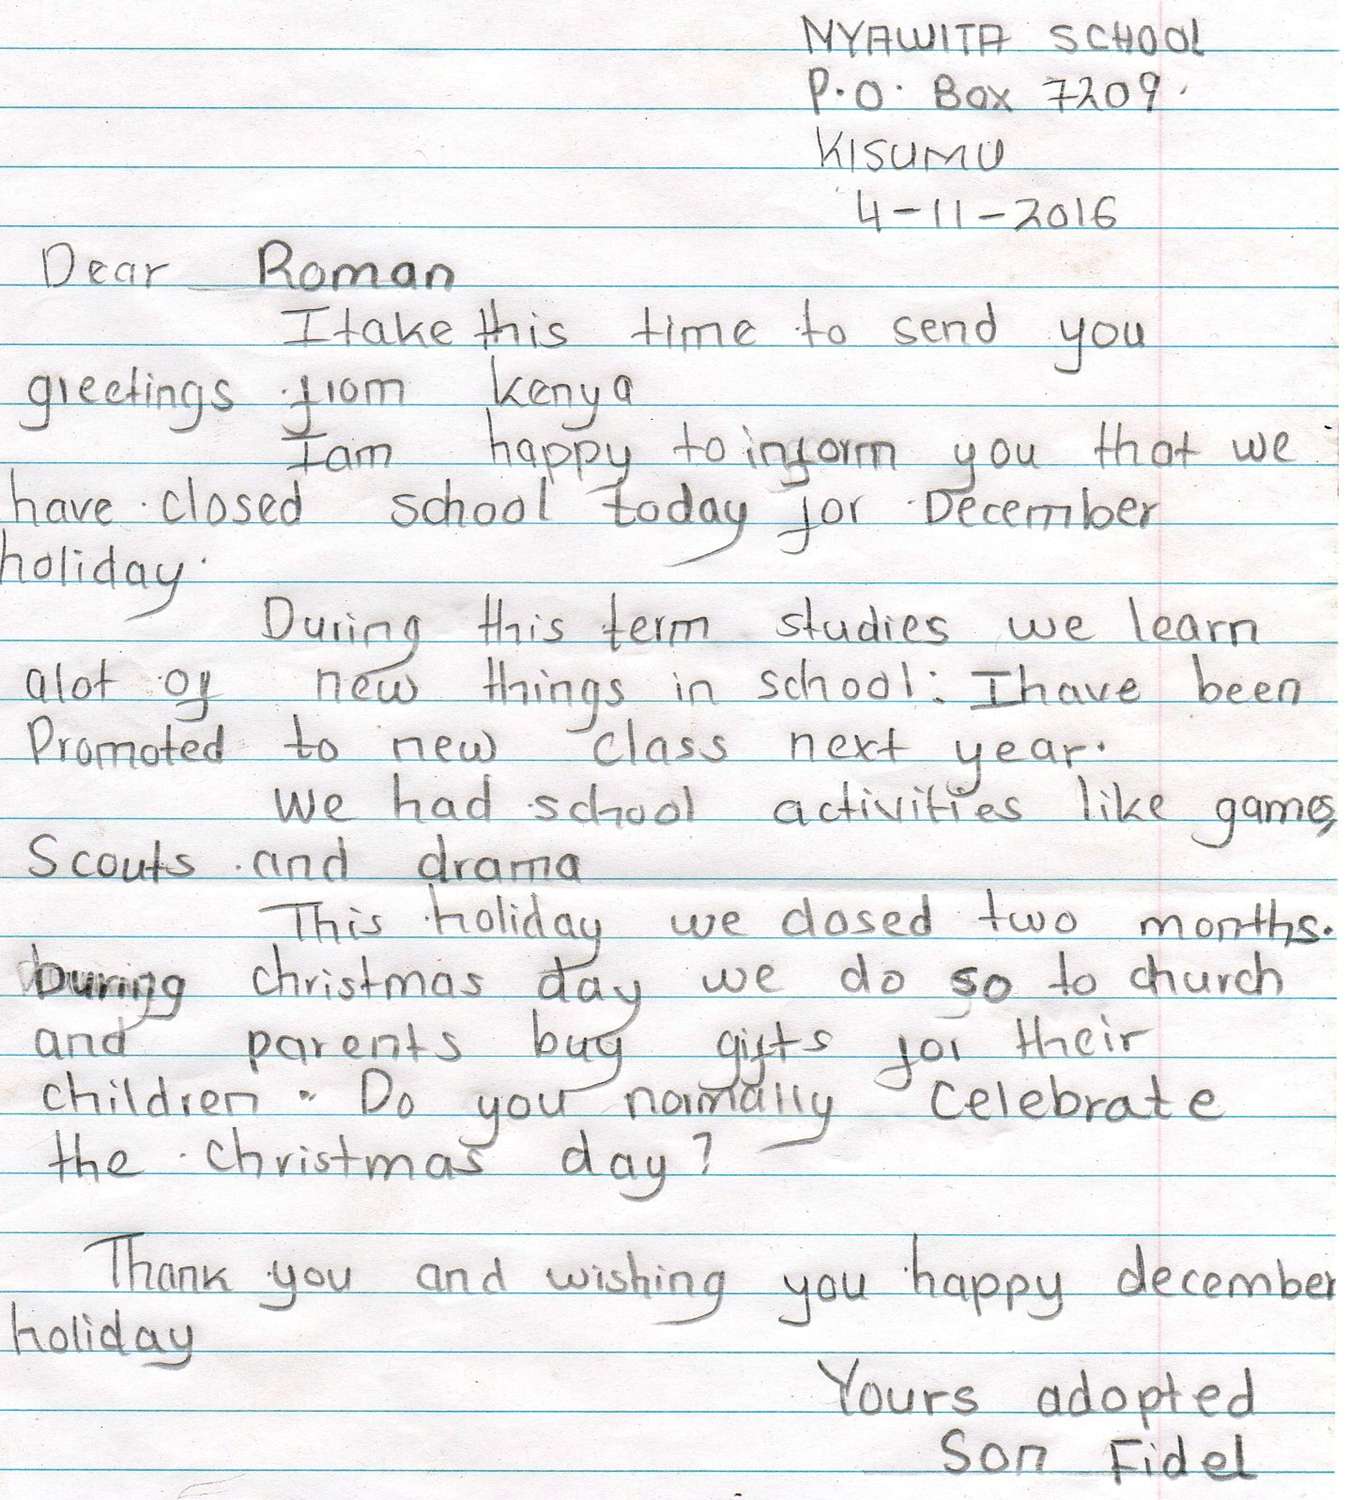 NYAWITA SCHOOL
P.O. Box 7209.
KISUMU
4-11-2016
Dear Roman
I take this time to send you
greetings from kenya
I am happy to inform you that we
have closed school today for December
holiday.
During this term studies we learn
alot of new things in school: I have been
Promoted to new class next year.
We had school activities like games,
Scouts and drama
This holiday we closed two months.
During christmas day we do so to church
and parents buy gifts for their
children. Do you normally celebrate
the christmas day?
Thank you and wishing you happy december
holiday
Yours adopted
Son Fidel